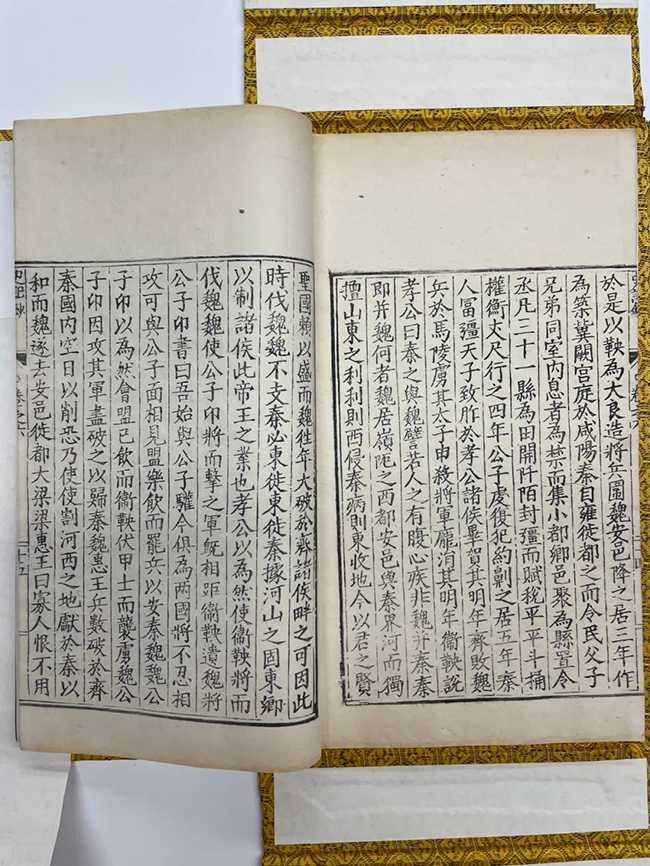 於是以鞅為大良造將兵圍魏安邑降之居三年作
為築冀闕宮庭於咸陽秦自雍徙都之而令民父子
兄弟同室內息者為禁而集小都鄉邑聚為縣置令
丞凡三十一縣為田開阡陌封疆而賦稅平平斗桶
權衡丈尺行之四年公子虔復犯約劓之居五年秦
人富彊天子致胙於孝公諸侯畢賀其明年齊敗魏
兵於馬陵虜其太子申殺將軍龐涓其明年衞鞅說
孝公曰秦之與魏譬若人之有腹心疾非魏并秦秦
即并魏何者魏居嶺阨之西都安邑與秦界河而獨
擅山東之利利則西侵秦病則東收地今以君之賢
聖國賴以盛而魏徃年大破於齊諸侯畔之可因此
時伐魏魏不支秦必東徙東徙秦據河山之固東鄉
以制諸侯此帝王之業也孝公以為然使衞鞅將而
伐魏魏使公子卬將而擊之軍旣相距衞鞅遺魏將
公子卬書曰吾始與公子驩今俱為兩國將不忍相
攻可與公子面相見盟樂飲而罷兵以安秦魏魏公
子卬以為然會盟已飲而衞鞅伏甲士而襲虜魏公
子卬因攻其軍盡破之以歸秦魏惠王兵數破於齊
秦國內空日以削恐乃使使割河西之地獻於秦以
和而魏遂去安邑徙都大梁梁惠王曰寡人恨不用
史記鈔 卷之六 十五